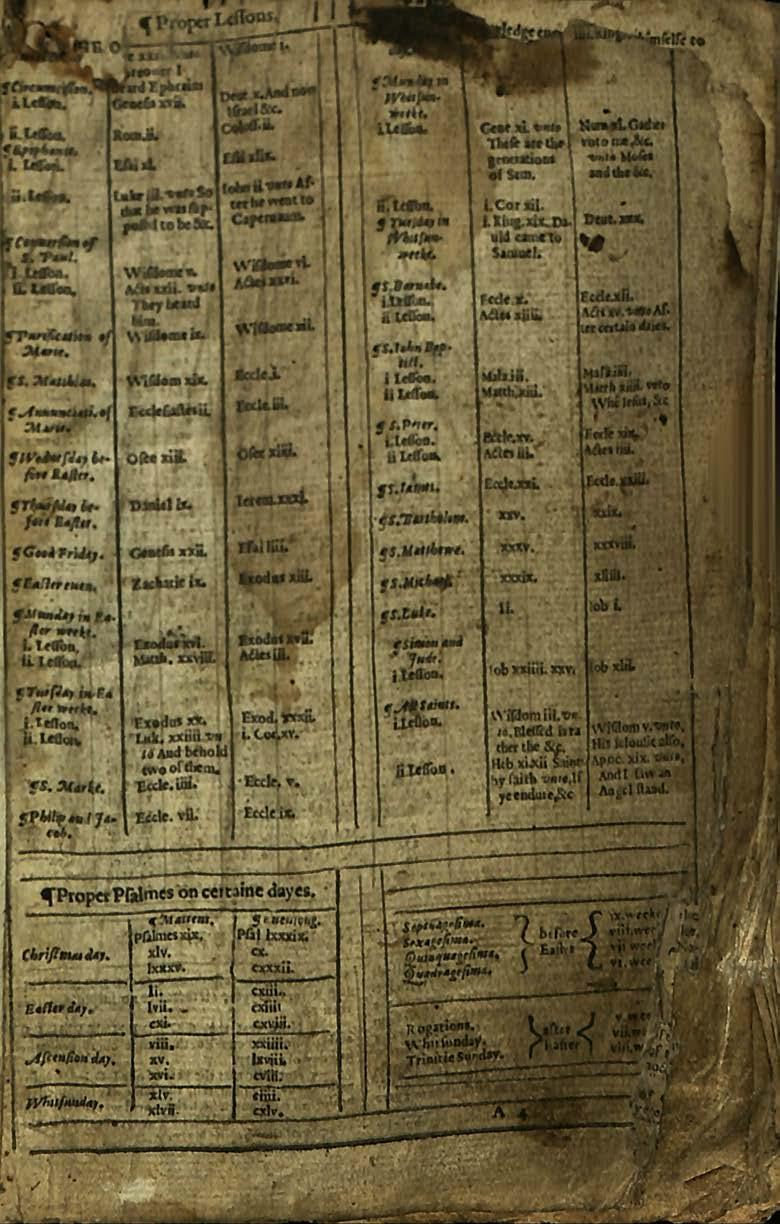 ¶ Proper Leſſons.
Wiſdome i.
¶Circumciſion.
i. Leſſon. Geneſis xvii. Deut x. And now
Iſrael &c.
ii. Leſſon. Rom.ii. Coloſſ.ii.
¶Epiphanie.
i. Leſſon. Eſai xl. Eſai xlix.
ii. Leſſon. Luke iii. vnto So Iohn ii vnto Af-
that he was ſup- ter he went to
poſed to be &c. Capernaum.
¶Conuerſion of
S. Paul.
i. Leſſon. Wiſdome v. Wiſdome vi.
ii. Leſſon. Acts xxii. vnto Actes xxvi.
They heard
him.
¶Purification of Wiſdome ix. Wiſdome xii.
Marie.
¶S. Matthias. Wiſdom xix. Eccle.i.
¶Annunciati. of Eccleſiaſtes ii. Eccle.iii.
Marie.
¶Wedneſday be- Oſee xiii. Oſee xiiii.
fore Eaſter.
¶Thurſday be- Daniel ix. Ierem.xxxi.
fore Eaſter.
¶Good Friday. Geneſis xxii. Eſai liii.
¶Eaſter euen. Zacharie ix. Exodus xiii.
¶Munday in Ea-
ſter weeke.
i. Leſſon. Exodus xvi. Exodus xvii.
ii. Leſſon. Matth. xxviii. Actes iii.
¶Tueſday in Ea
ſter weeke.
i. Leſſon. Exodus xx. Exod. xxxii.
ii. Leſſon. Luk. xxiiii vn i. Cor.xv.
to And behold
two of them.
¶S. Marke. Eccle. iiii. Eccle. v.
¶Philip and Ja- Eccle. vii. Eccle ix.
cob.
himſelfe to
¶Munday in
Whitſun-
weeke.
i.Leſſon. Gene xi. vnto Num xi. Gather
Theſe are the vnto me, &c.
generations vnto Moſes
of Sem. and the &c.
ii. Leſſon. i. Cor xii.
¶Tueſday in i. King. xix. Da- Deut. xxx.
Whitſun- uid came to
weeke. Samuel.
¶S.Barnabe.
i.Leſſon. Eccle.x. Eccle.xii.
ii Leſſon. Actes xiiii. Acts xv. vnto Af-
ter certain daies.
¶S.Iohn Bap-
tiſt.
i Leſſon. Mala.iii. Mala.iiii.
ii Leſſon. Matth.xiii. Matth xiiii. vnto
Whē Ieſus, &c
¶S.Peter.
i.Leſſon. Eccle.xv. Eccle xix.
ii Leſſon. Actes iii. Actes iiii.
¶S.Iames. Eccle.xxi. Eccle. xxiii.
¶S.Bartholome. xxv. xxix.
¶S.Matthewe. xxxv. xxxviii.
¶S.Michael. xxxix. xliiii.
¶S.Luke. li. Iob i.
¶Simon and
Jude.
i.Leſſon. Iob xxiiii. xxv. Iob xlii.
¶All Saints.
i.Leſſon. Wiſdom iii. vn- Wiſdom v. vnto,
to, Bleſſed is ra His ielouſie alſo,
ther the &c.
ii Leſſon. Heb xi.xii Saints Apoc. xix. vnto,
by faith vnto, If And I ſaw an
ye endure, &c Angel ſtand.
¶Proper Pſalmes on certaine dayes.
¶ Mattens. ¶ Euenſong.
Chriſtmas day. Pſalmes xix. Pſal lxxxix.
xlv. cx.
lxxxv. cxxxii.
Eaſter day. ii. cxiii.
lvii. cxiiii
cxi. cxviii.
Aſcenſion day. viii. xxiiii.
xv. lxviii.
xvi. cviii.
Whitſunday. xlv. ciiii.
xlvii. cxlv.
Septuageſima. before Eaſter ix.weeke
Sexageſima. viii.wee
Quinquageſima. vii weel
Quadrageſima. vi. wee
Rogations. after Eaſter v.wee
Whitſunday. vii.w
Trinitie Sunday. viii.w
A 4